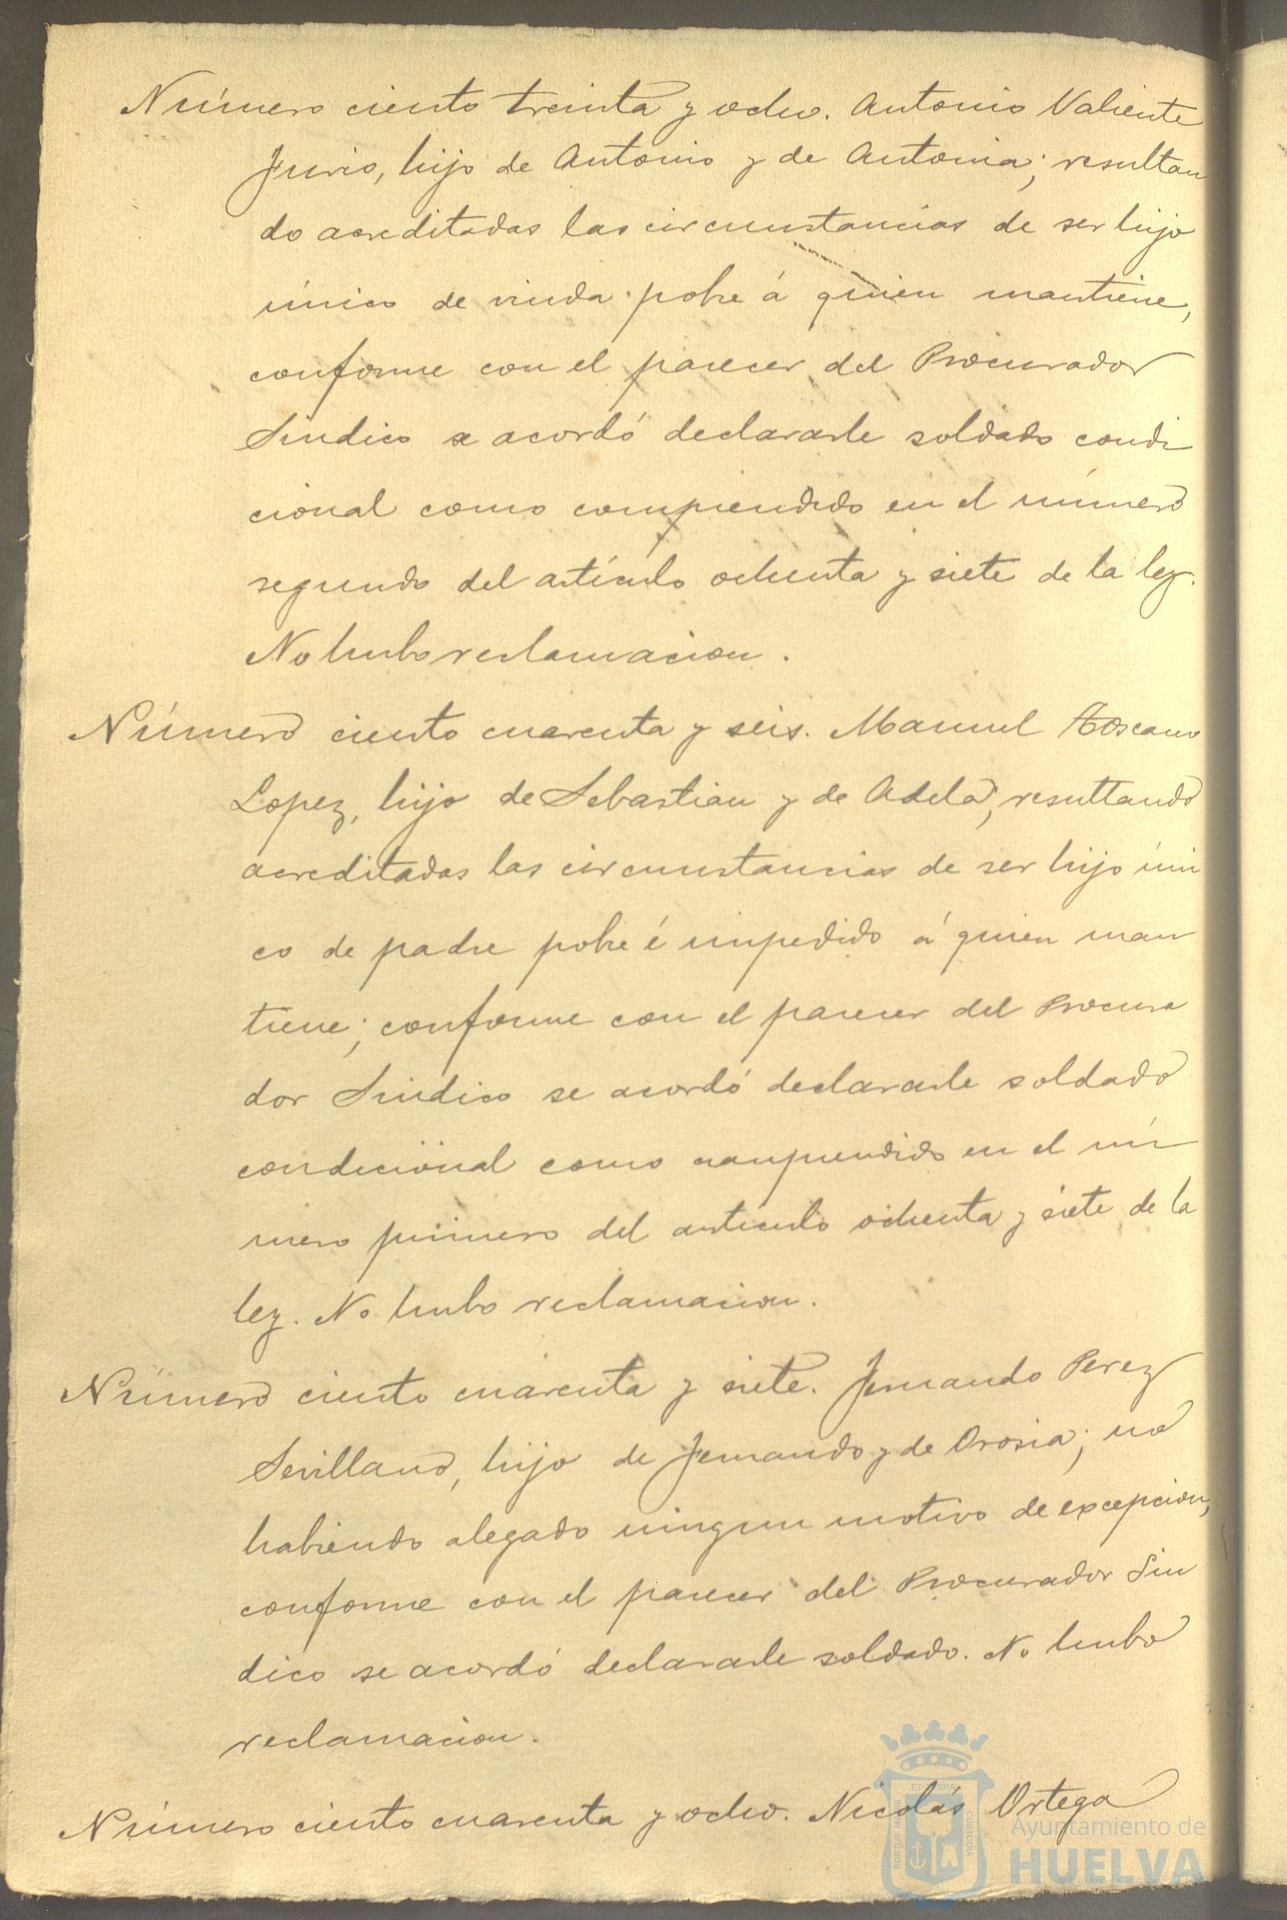 Número ciento treinta y ocho. Antonio Valiente
Jurio, hijo de Antonio y de Antonia; resultan
do acreditadas las circunstancias de ser hijo
único de viuda pobre á quien mantiene,
conforme con el parecer del Procurador
Sindico se acordó declararle soldado condi
cional como comprendido en el número
segundo del artículo ochenta y siete de la ley.
No hubo reclamacion.
Número ciento cuarenta y seis. Manuel Toscano
Lopez, hijo de Sebastian y de Adela; resultando
acreditadas las circunstancias de ser hijo úni
co de padre pobre é impedido á quien man
tiene; conforme con el parecer del Procura
dor Sindico se acordó declararle soldado
condicional como comprendido en el nú
mero primero del articulo ochenta y siete de la
ley. No hubo reclamacion.
Número ciento cuarenta y siete. Fernando Perez
Sevillano, hijo de Fernando y de Orosia; no
habiendo alegado ningun motivo de excepcion,
conforme con el parecer del Procurador Sin
dico se acordó declararle soldado. No hubo
reclamacion.
Número ciento cuarenta y ocho. Nicolás Ortega
Ayuntamiento de
HUELVA